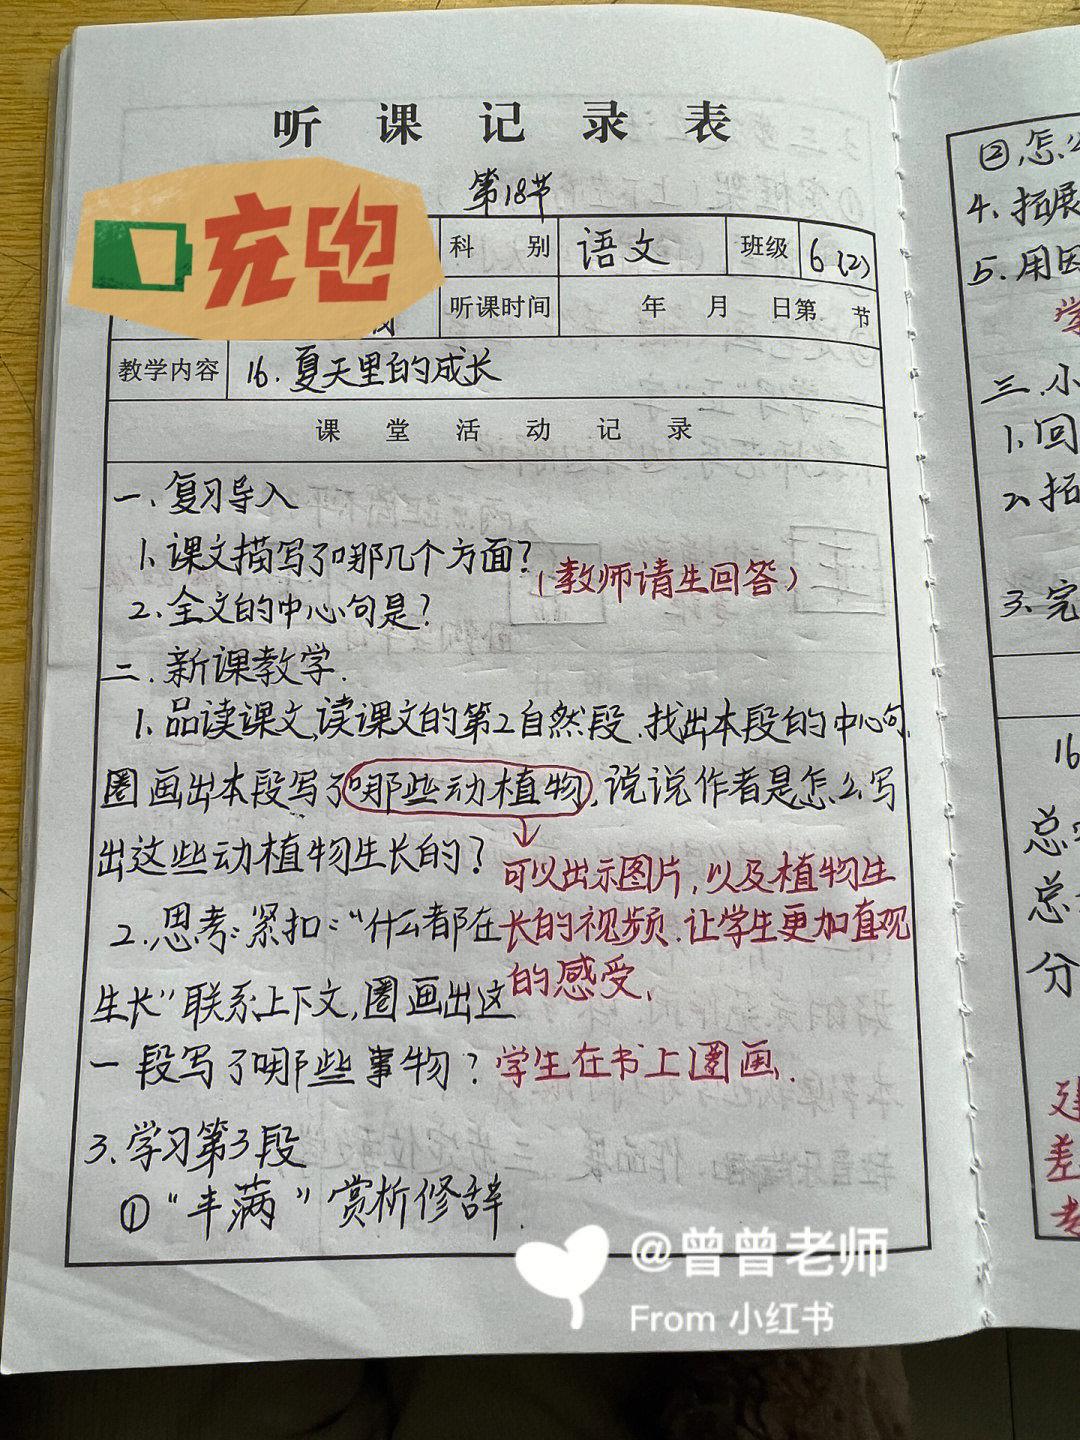 听课记录表
第18节
充电
科别 语文 班级 6(2)
听课时间 年 月 日第 节
教学内容 16.夏天里的成长
课堂活动记录
一.复习导入
1.课文描写了哪几个方面?
(教师请生回答)
2.全文的中心句是?
二.新课教学.
1.品读课文,读课文的第2自然段.找出本段的中心句.
圈画出本段写了哪些动植物,说说作者是怎么写
出这些动植物生长的?
可以出示图片,以及植物生
长的视频.让学生更加直观
的感受.
2.思考:紧扣:"什么都在
生长"联系上下文,圈画出这
一段写了哪些事物?
学生在书上圈画.
3.学习第3段
①"丰满"赏析修辞.
②.怎么
4.拓展
5.用因
学
三.小
1.回
2.拓
3.完
16
总
总
分
建
差
@曾曾老师
From 小红书